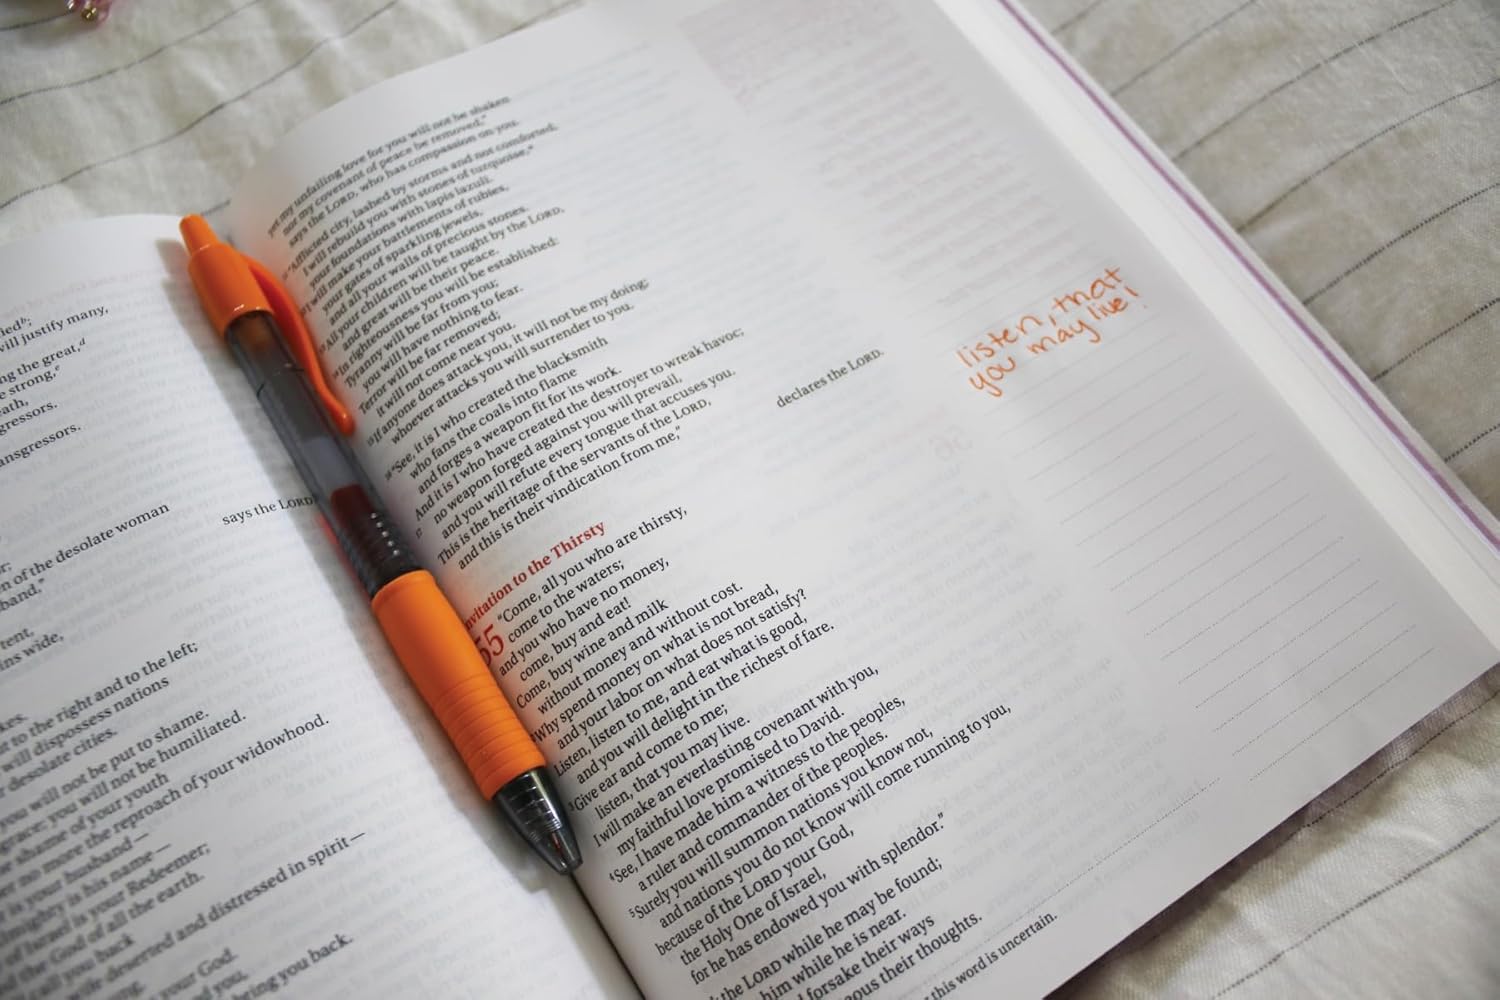 led b;
will justify many,
ng the great, d
e strong, e
eath,
gressors.
ansgressors.
says the LORD
n of the desolate woman
or;
band,"
tent,
ns wide,
kes.
t to the right and to the left;
will dispossess nations
desolate cities.
you will not be put to shame.
grace; you will not be humiliated.
e shame of your youth
er no more the reproach of your widowhood.
r is your husband—
ghty is his name—
of Israel is your Redeemer;
d the God of all the earth.
ll call you back
ife deserted and distressed in spirit—
your God.
d you,
bring you back.
yet my unfailing love for you will not be shaken
nor my covenant of peace be removed,"
says the LORD, who has compassion on you.
11 "Afflicted city, lashed by storms and not comforted,
I will rebuild you with stones of turquoise, a
your foundations with lapis lazuli.
12 I will make your battlements of rubies,
your gates of sparkling jewels,
and all your walls of precious stones.
13 All your children will be taught by the LORD,
and great will be their peace.
14 In righteousness you will be established:
Tyranny will be far from you;
you will have nothing to fear.
Terror will be far removed;
it will not come near you.
15 If anyone does attack you, it will not be my doing;
whoever attacks you will surrender to you.
16 "See, it is I who created the blacksmith
who fans the coals into flame
and forges a weapon fit for its work.
And it is I who have created the destroyer to wreak havoc;
17 no weapon forged against you will prevail,
and you will refute every tongue that accuses you.
This is the heritage of the servants of the LORD,
and this is their vindication from me,"
declares the LORD.
nvitation to the Thirsty
55 "Come, all you who are thirsty,
come to the waters;
and you who have no money,
come, buy and eat!
Come, buy wine and milk
without money and without cost.
2 Why spend money on what is not bread,
and your labor on what does not satisfy?
Listen, listen to me, and eat what is good,
and you will delight in the richest of fare.
3 Give ear and come to me;
listen, that you may live.
I will make an everlasting covenant with you,
my faithful love promised to David.
4 See, I have made him a witness to the peoples,
a ruler and commander of the peoples.
5 Surely you will summon nations you know not,
and nations you do not know will come running to you,
because of the LORD your God,
the Holy One of Israel,
for he has endowed you with splendor."
the LORD while he may be found;
him while he is near.
forsake their ways
eous their thoughts.
this word is uncertain.
listen, that
you may live!